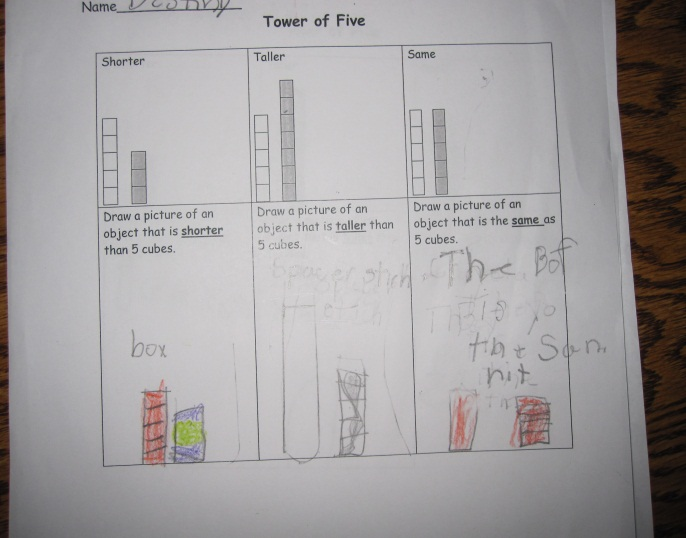 Name Destiny
Tower of Five
Shorter
Taller
Same
Draw a picture of an
object that is shorter
than 5 cubes.
Draw a picture of an
object that is taller than
5 cubes.
Draw a picture of an
object that is the same as
5 cubes.
box
The Bof
the San
hit